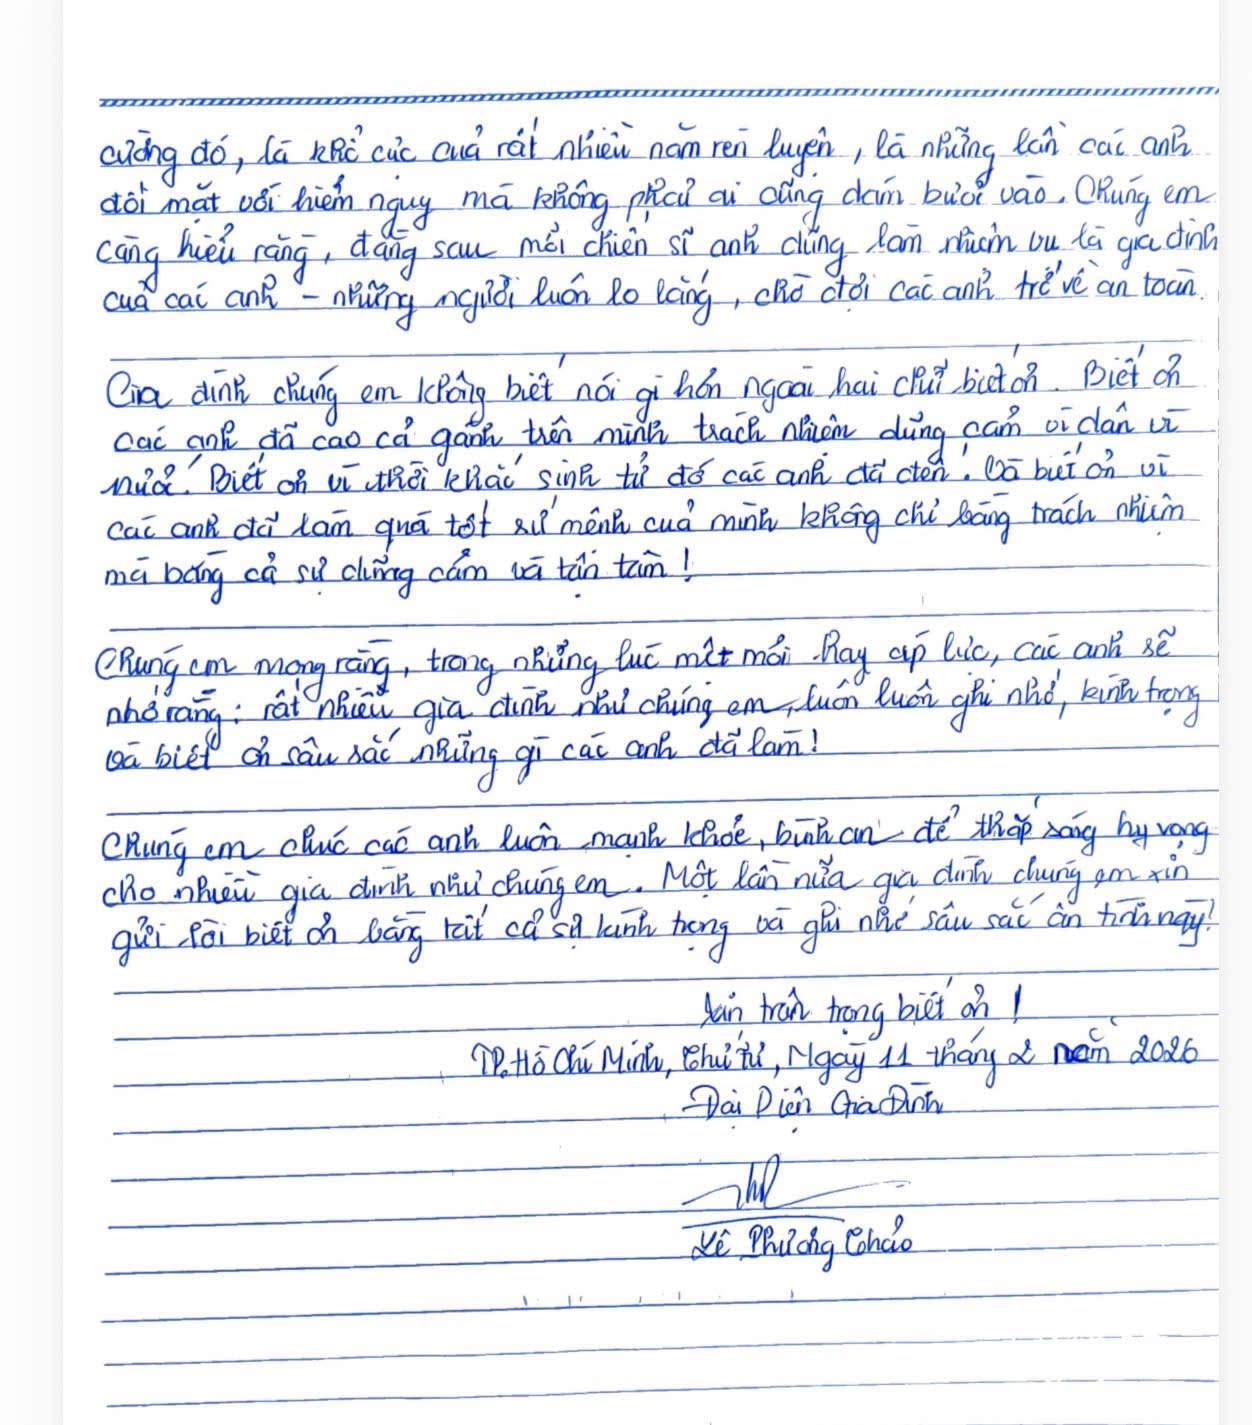 cường đó, là khổ cực của rất nhiều năm rèn luyện, là những lần các anh
đối mặt với hiểm nguy mà không phải ai cũng dám bước vào. Chúng em
càng hiểu rằng, đằng sau mỗi chiến sĩ anh dũng làm nhiệm vụ là gia đình
của các anh - những người luôn lo lắng, chờ đợi các anh trở về an toàn.
Gia đình chúng em không biết nói gì hơn ngoài hai chữ biết ơn. Biết ơn
các anh đã cao cả gánh trên mình trách nhiệm dũng cảm vì dân vì
nước. Biết ơn vì thời khắc sinh tử đó các anh đã đến. Và biết ơn vì
các anh đã làm quá tốt sứ mệnh của mình không chỉ bằng trách nhiệm
mà bằng cả sự dũng cảm và tận tâm!
Chúng em mong rằng, trong những lúc mệt mỏi hay áp lực, các anh sẽ
nhớ rằng: rất nhiều gia đình như chúng em, luôn luôn ghi nhớ, kính trọng
và biết ơn sâu sắc những gì các anh đã làm!
Chúng em chúc các anh luôn mạnh khỏe, bình an để thắp sáng hy vọng
cho nhiều gia đình như chúng em. Một lần nữa gia đình chúng em xin
gửi lời biết ơn bằng tất cả sự kính trọng và ghi nhớ sâu sắc ân tình này!
Xin trân trọng biết ơn!
TP. Hồ Chí Minh, Thứ tư, Ngày 11 tháng 2 năm 2026
Đại Diện Gia Đình
Lê Phương Thảo